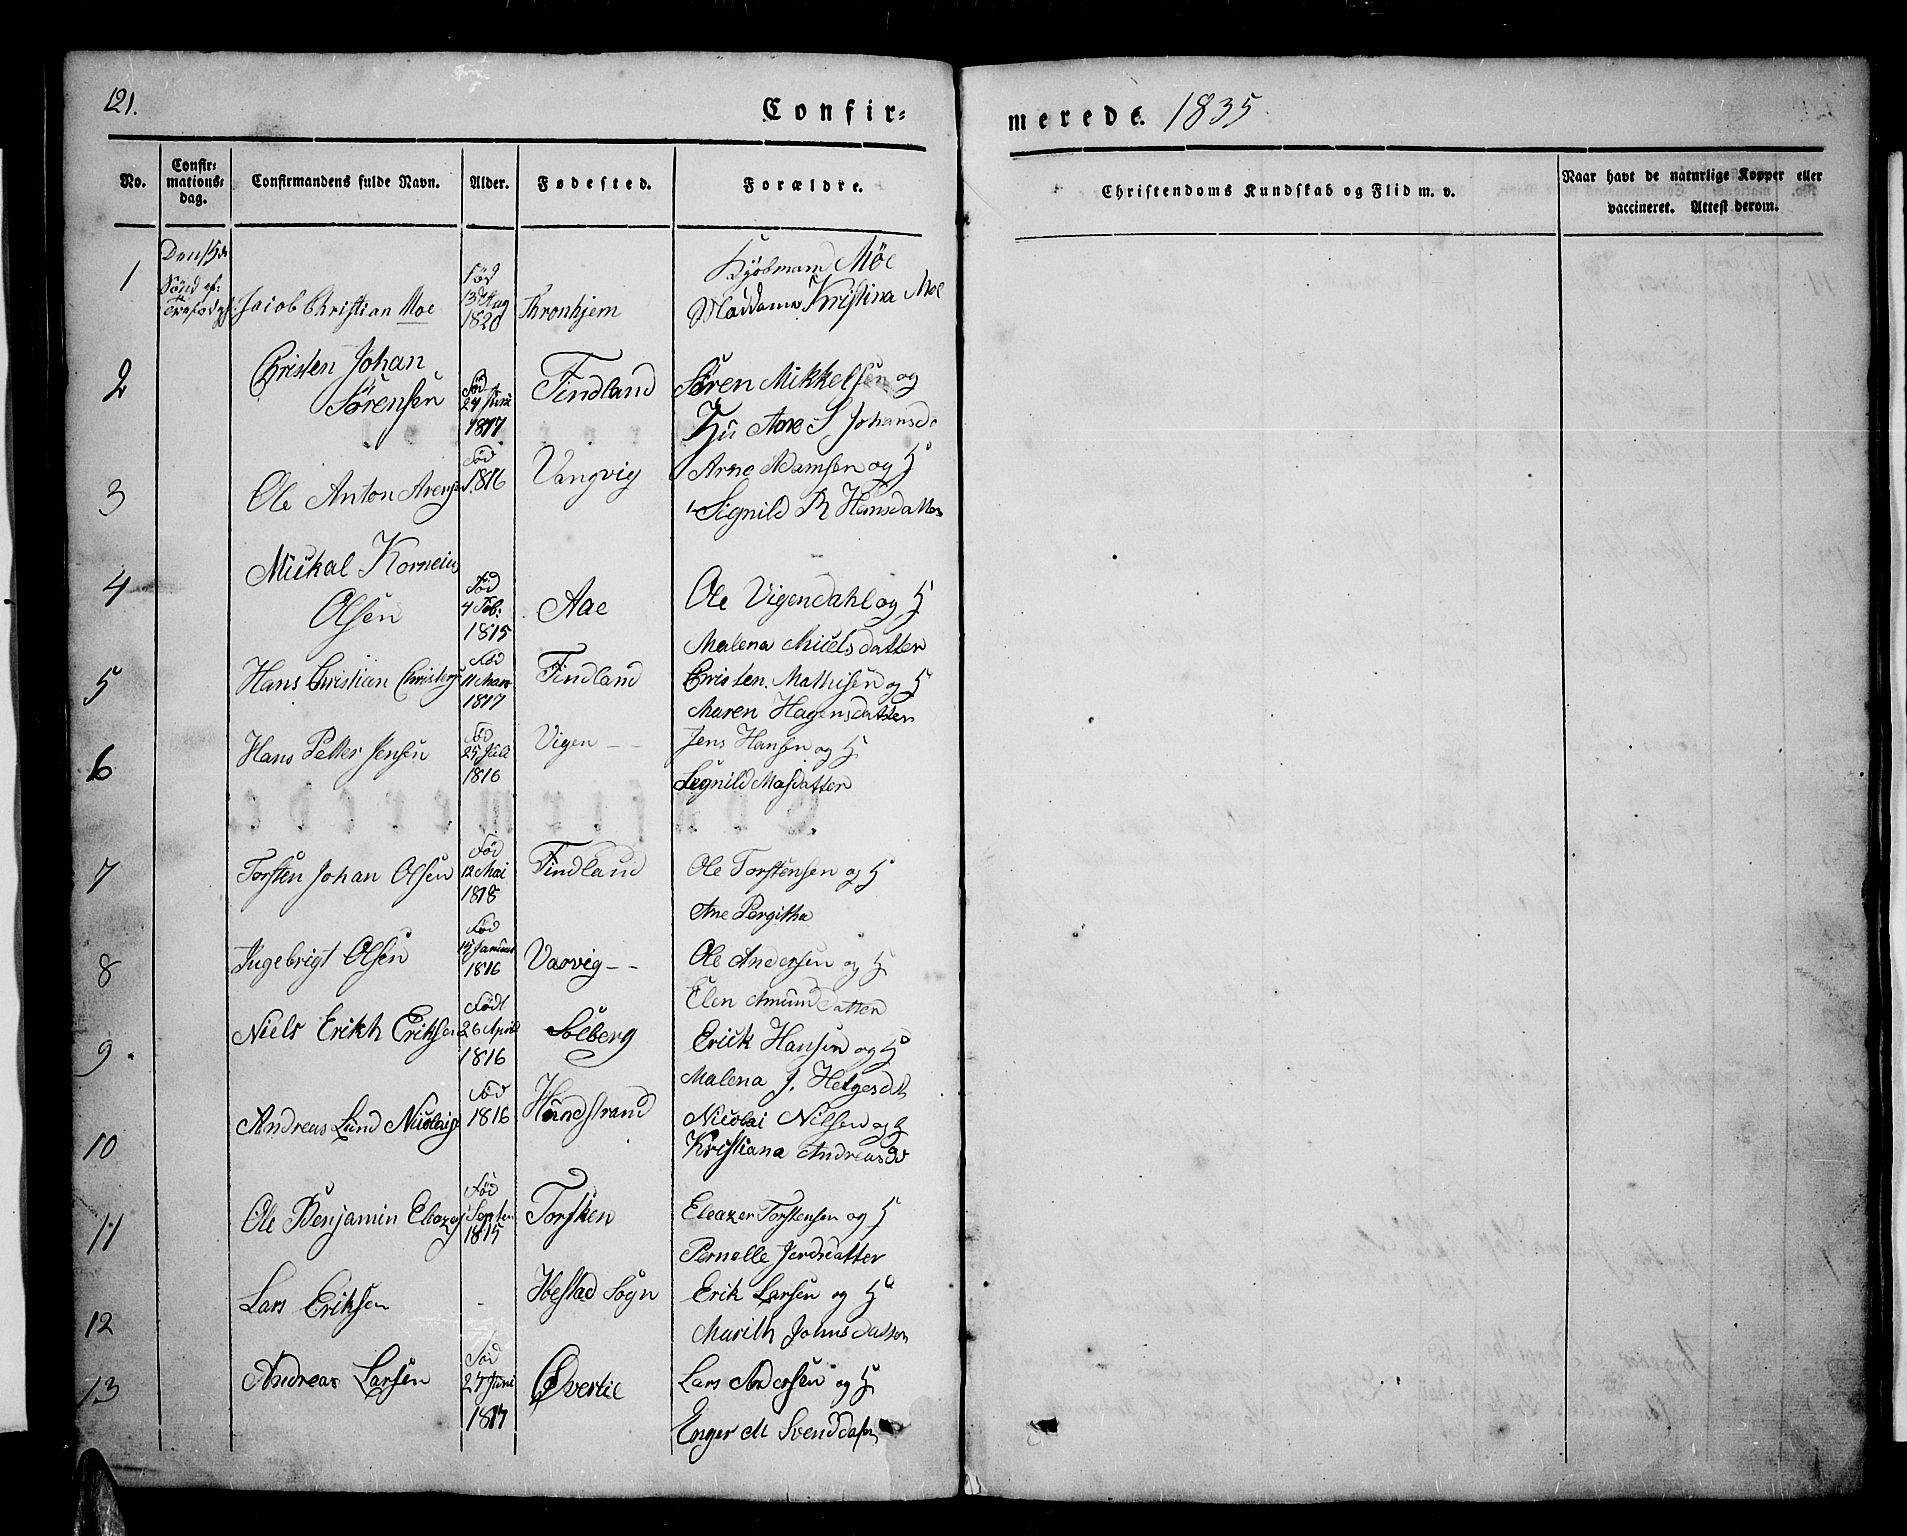 121.
Confir=
merede. 1835.
No.
Confir=
mations=
dag.
Confirmandens fulde Navn.
Alder.
Fødested.
Forældre.
Christendoms Kundskab og Flid m. v.
Naar havt de naturlige Kopper eller
vaccineret. Attest derom.
1
Jacob Christian Moe
Fød
13de Aug
1820
Thronhjem
Kjøbmand Møe
Maddame Kristina Moe
2
Christen Johan
Sørensen
Fød
24 Juni
1817
Findland
Sören Mikkelsen og
Hu Ane S Johansd
3
Ole Anton Arensen
Fød
1816
Vangvig
Arne Adamsen og H
Signild R Hansdatter
4
Mickal Korneius
Olsen
Fød
4 Feb:
1815
Aae
Ole Vigendahl og H
Malena Mielsdatter
5
Hans Christian Christens
Fød
11 Mars
1817
Findland
Cristen Mathisen og H
Maren Hagensdatter
6
Hans Petter Jensen
Fød
25 Juli
1816
Vigen
Jens Hansen og H
Segnild Masdatter
7
Torsten Johan Olsen
Fød
12 Mai
1818
Findland
Ole Torstensen og H
Ane Pergitha
8
Ingebrigt Olsen
Fød
15 Januar
1816
Vasvig
Ole Andersen og H
Elen Amunddatter
9
Niels Erikh Eriksen
Født
26 April
1816
Solberg
Erick Hansen og H
Malena J. Helgesdt
10
Andreas Lund Nicolais
Fød
1816
Hundstrand
Nicolai Nilsen og H
Kristiana Andreasd
11
Ole Benjamin Eleazers
Fød
Septer
1815
Torsken
Eleazer Torstensen og H
Pernelle Jerdsdatter
12
Lars Eriksen
-
Ibestad Sogn
Erik Larsen og H
Marith Johnsdatter
13
Andreas Larsen
Fød
27 Juni
1817
Øverlie
Lars Andersen og H
Enger M Svenddatr